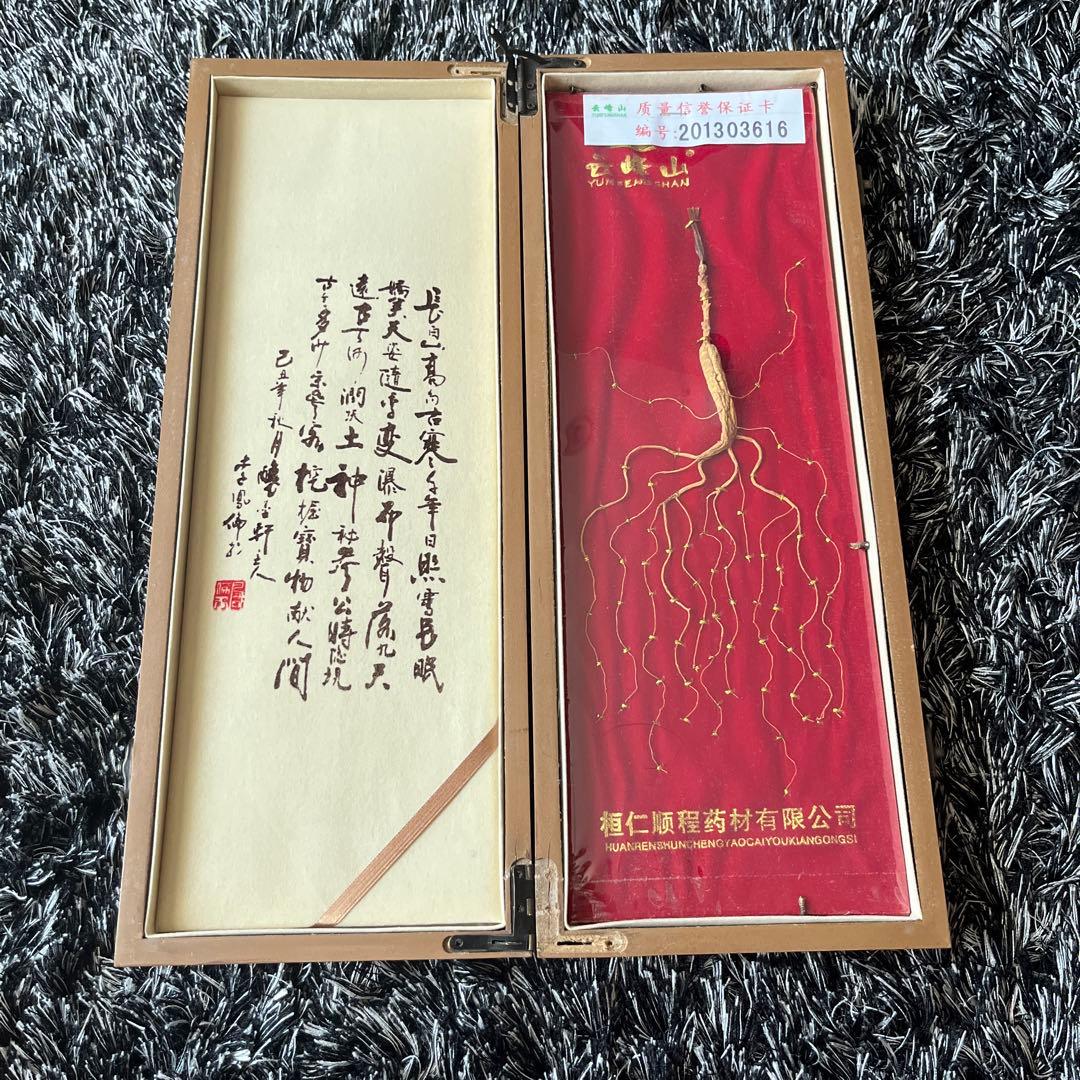 長白山高古寒千年日照雪長眠
天随變瀑布聲落九天
遠古润沃土神秘參公時隱現
多少客挖掘寶物献人間
己丑年秋月軒主人
李鳳
云峰山
YUNFENGSHAN
质量信誉保证卡
编号:201303616
云峰山®
YUNFENGSHAN
桓仁顺程药材有限公司
HUANRENSHUNCHENGYAOCAIYOUXIANGONGSI